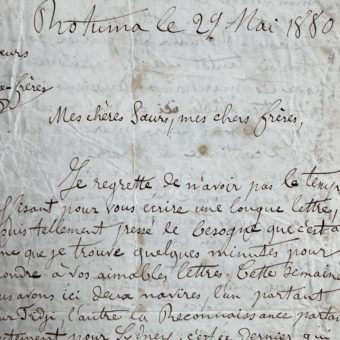 Rotuma le 29 Mai 1880
Sœurs
x-frères
Mes chères Sœurs, mes chers frères,
Je regrette de n'avoir pas le temp
ffisant pour vous ecrire une longue lettre,
suis tellement pressé de besogne que c'est à
ne que je trouve quelques minutes pour
ondre à vos aimables lettres. Cette semaine
us avons ici deux navires, l'un partant
ur Fidji, l'autre la Reconnaissance partan
tement pour Sidney, c'est ce dernier qui